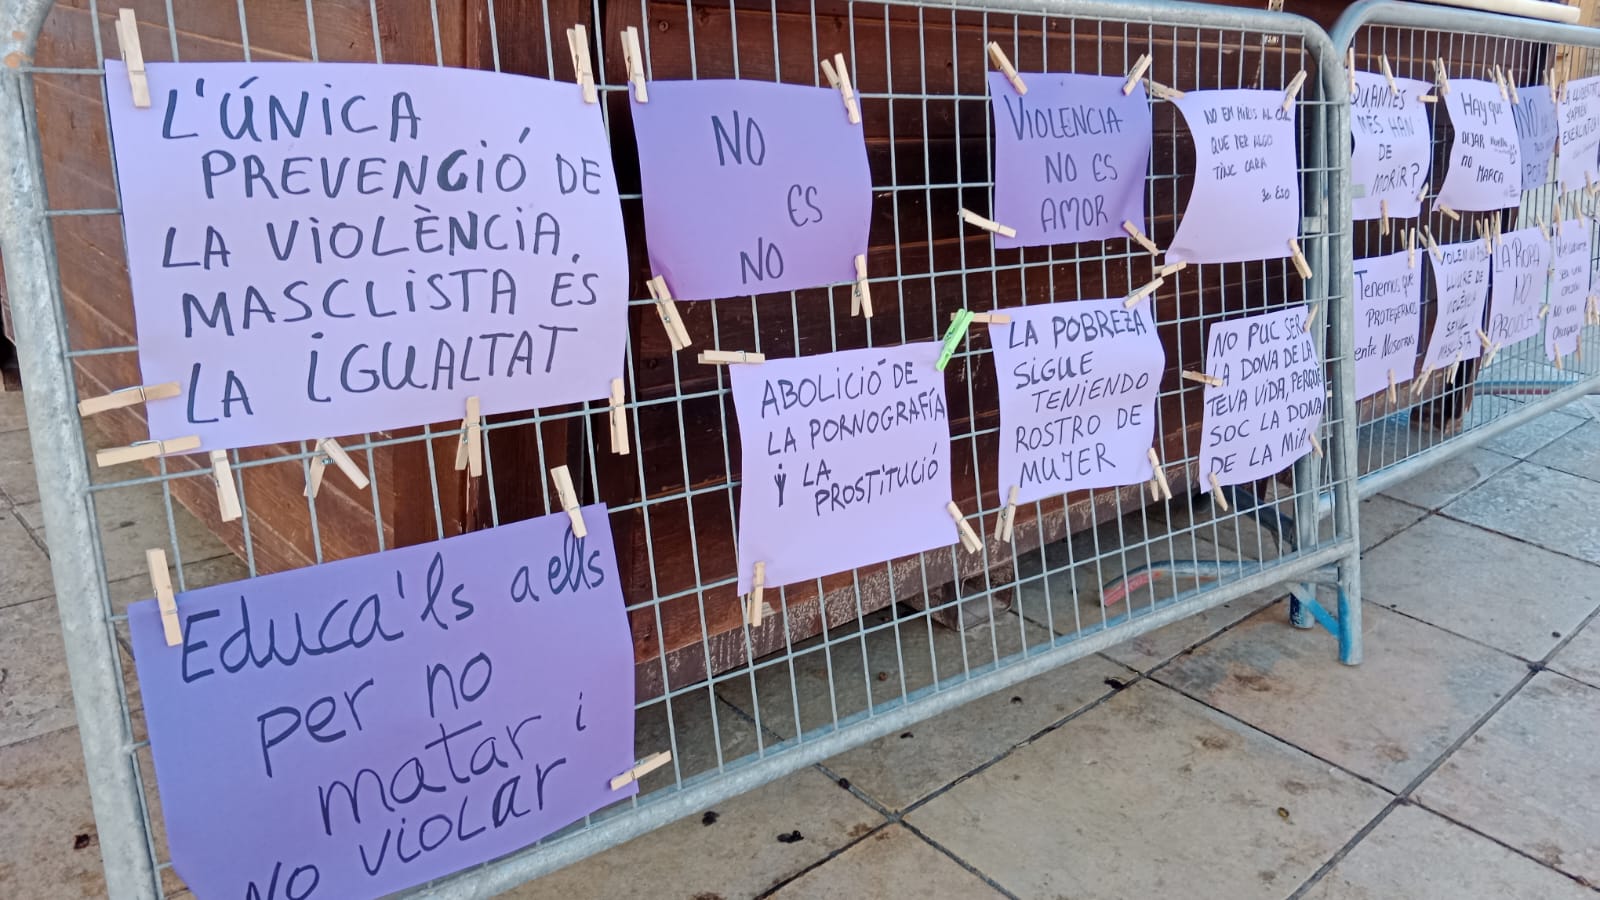 L'ÚNICA
PREVENCIÓ DE
LA VIOLÈNCIA
MASCLISTA ÉS
LA IGUALTAT
NO
ES
NO
VIOLENCIA
NO ES
AMOR
NO EM MIRIS AL CUL
QUE PER ALGO
TINC CARA
3r ESO
QUANTES
MÉS HAN
DE
MORIR?
HAY QUE
DEJAR
NO
MARCA
NO
LA LLIBERTAT
Educa'ls a ells
per no
matar i
NO VIOLAR
ABOLICIÓ DE
LA PORNOGRAFÍA
Y LA
PROSTITUCIÓ
LA POBREZA
SIGUE
TENIENDO
ROSTRO DE
MUJER
NO PUC SER
LA DONA DE LA
TEVA VIDA, PERQUÈ
SOC LA DONA
DE LA MIA
Tenemos que
PROTEGERNOS
entre Nosotras
VOLEM
LLIURE DE
VIOLÈNCIA
MASCLISTA
LA ROPA
NO
PROVOCA